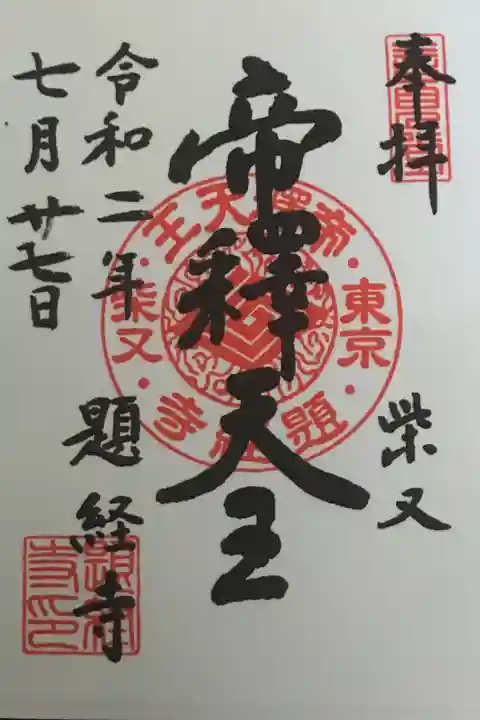 奉拝
柴又
帝釋天王
令和二年
七月廿七日
題経寺
帝釋天王
東京
柴又
題経寺